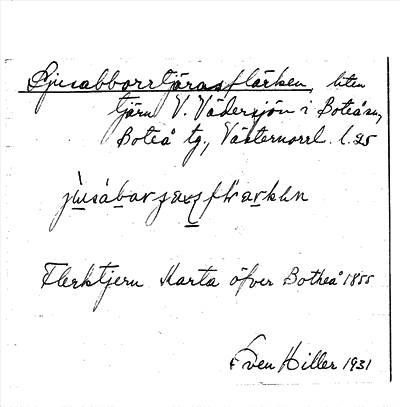 Ljusabborrtjärasflärken, liten
tjärn V. Vädersjön i Boteå sn,
Boteå tg., Västernorrl. l. 25
Flerktjern Karta öfver Botheå 1855
Sven Hiller 1931